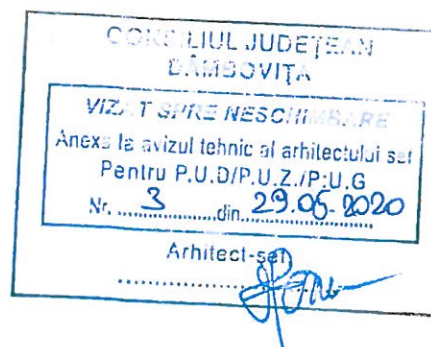 CONSILIUL JUDEȚEAN
DÂMBOVIȚA
VIZAT SPRE NESCHIMBARE
Anexa la avizul tehnic al arhitectului șef
Pentru P.U.D/P.U.Z./P.U.G
Nr. ........3........din...29.05.2020
Arhitect-șef,